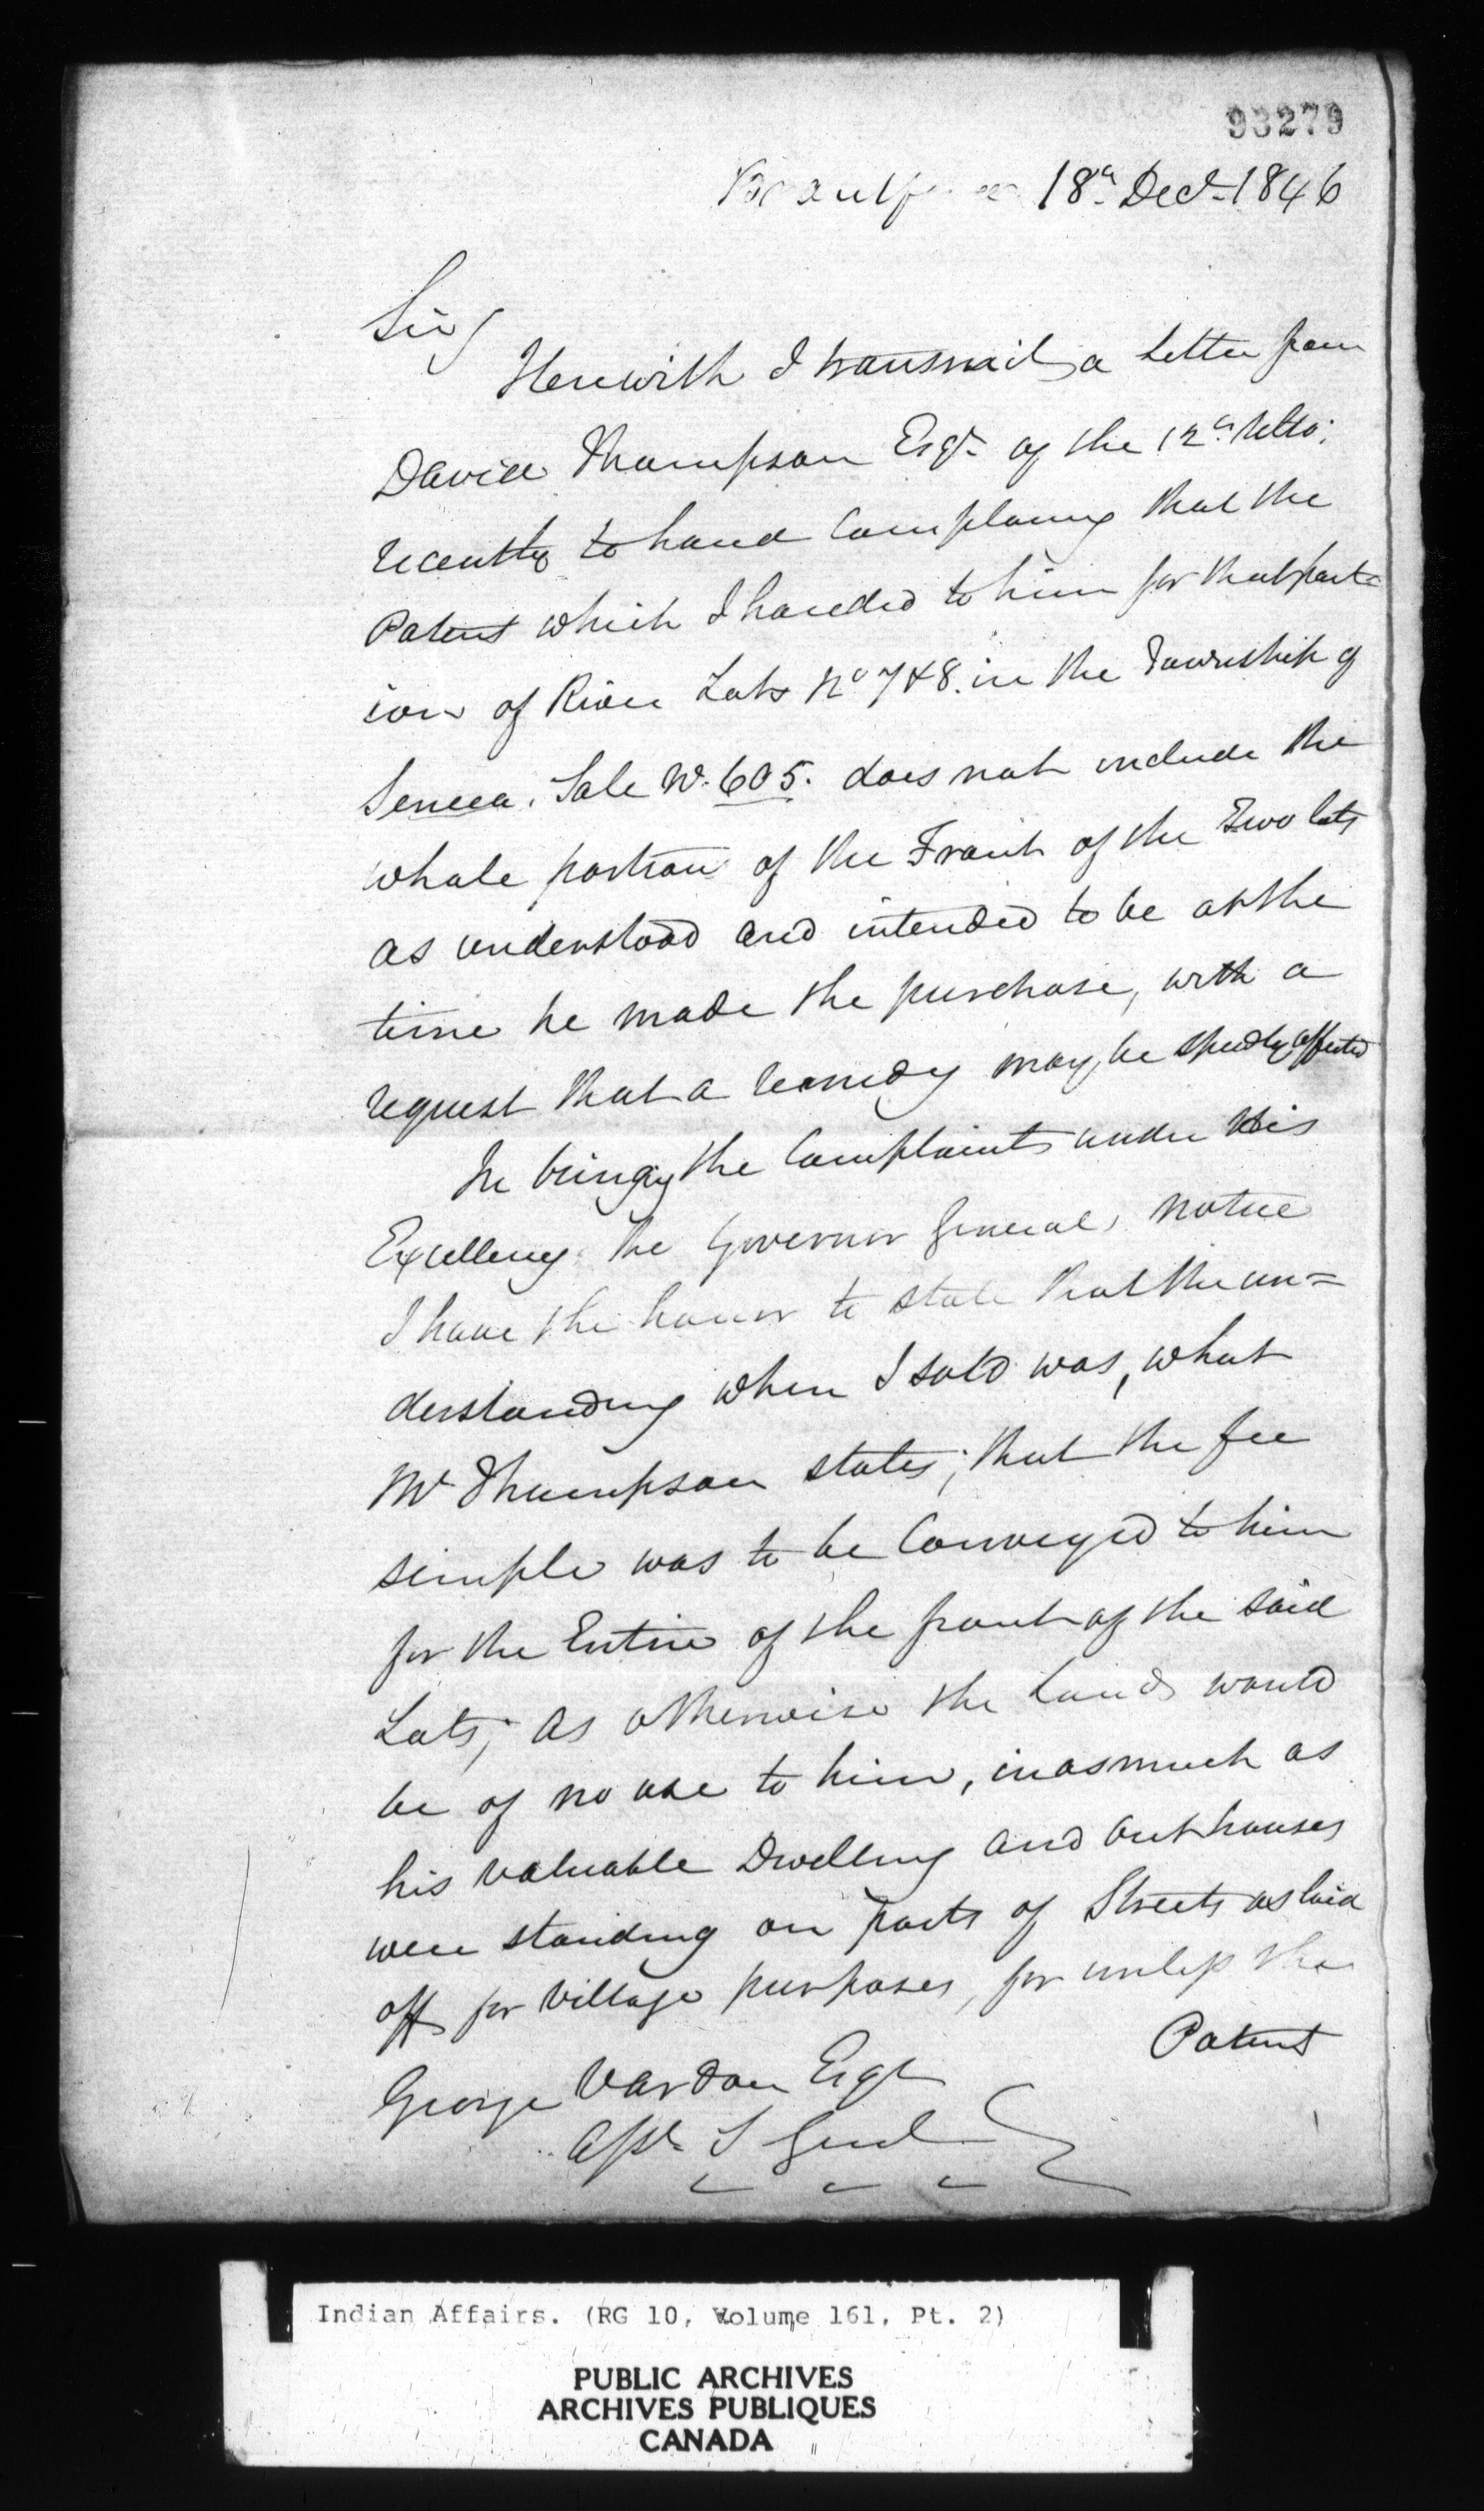 93279
Brantford 18th Decr 1846
Sir/
Herewith I transmit a letter from
David Thompson Esqr of the 12th Ulto;
recently to hand Complaing that the
Patent which I handed to him for that port=
ion of River Lots No 7 & 8. in the Township of
Seneca. Sale No. 605. does not include the
whole portion of the Front of the Two lots
as understood and intended to be at the
time he made the purchase, with a
request that a remedy may be speedly affected
In bringg the Complaint under His
Excellency the Governor General, notice
I have the honor to state that the un=
derstanding when I sold was, what
Mr Thompson states; that the fee
simple was to be Conveyed to him
for the Entire of the front of the said
Lots; as otherwise the Lands would
be of no use to him, inasmuch as
his valuable Dwelling and out houses
were standing on parts of Streets as laid
off for Village purposes, for unless the
Patent
George Vardon Esqr
Asst. S Genl
Indian Affairs. (RG 10, Volume 161, Pt. 2)
PUBLIC ARCHIVES
ARCHIVES PUBLIQUES
CANADA